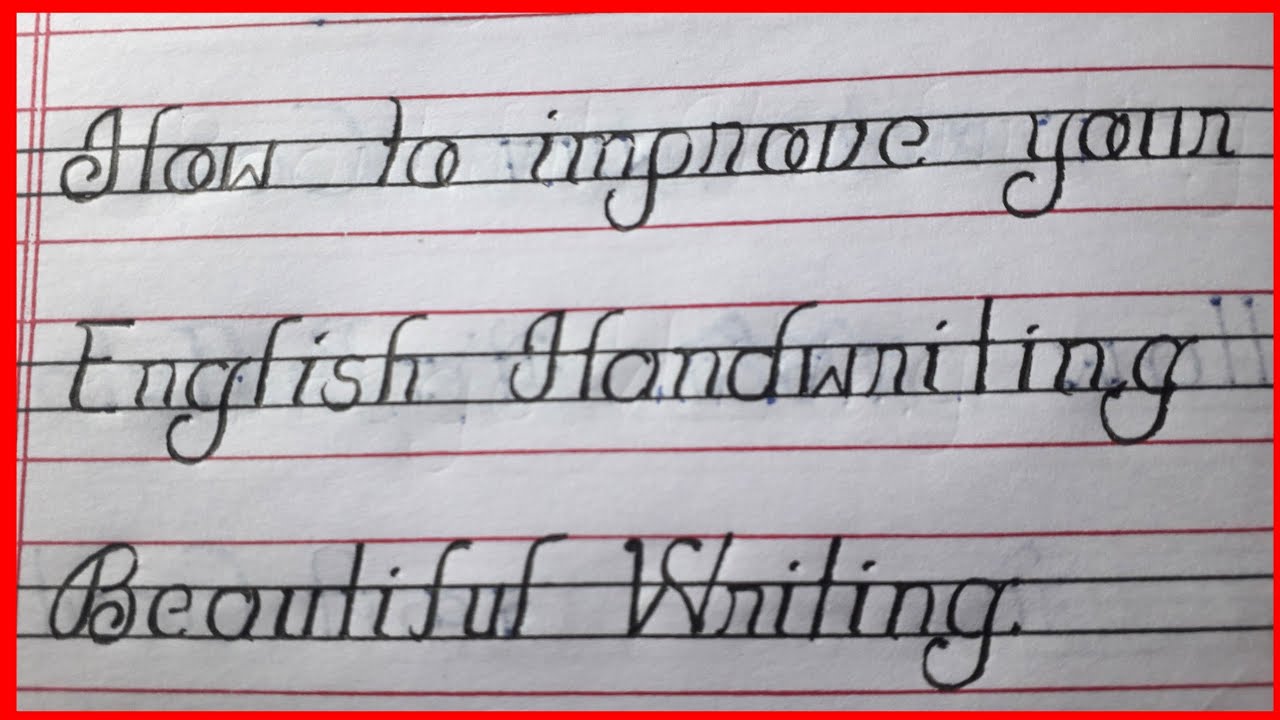 How to improve your
English Handwriting
Beautiful Writing.